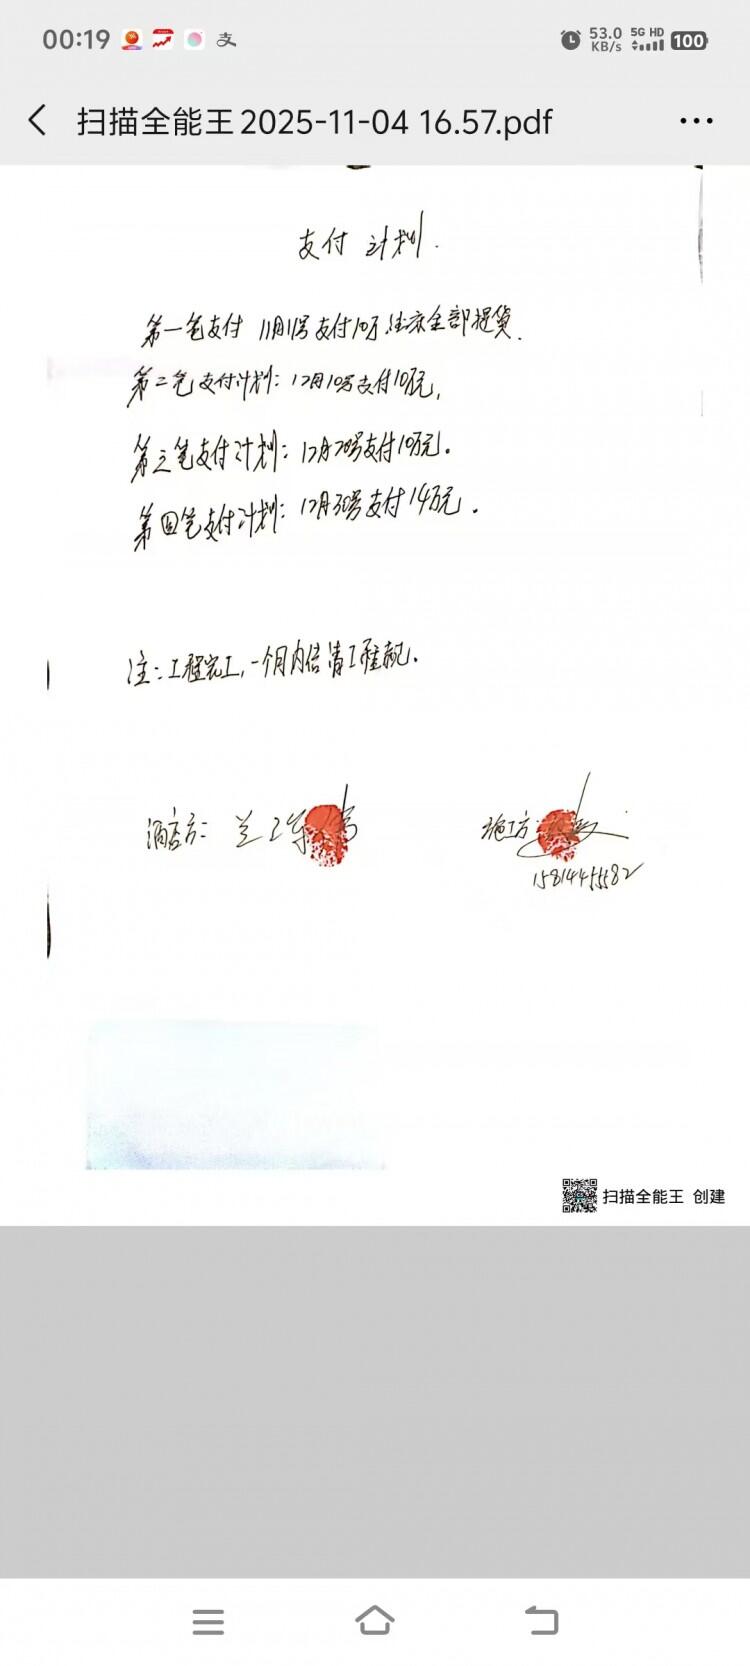 00:19
53.0 KB/s 5G HD 100
扫描全能王2025-11-04 16.57.pdf
支付计划.
第一笔支付 11月1号支付10万.洁京全部提货.
第二笔支付计划：12月10号支付10万元,
第三笔支付计划：12月20号支付10万元.
第四笔支付计划：12月30号支付14万元.
注：工程完工,一个月内结清工程款.
酒店方：
施工方：
15814455582
扫描全能王 创建